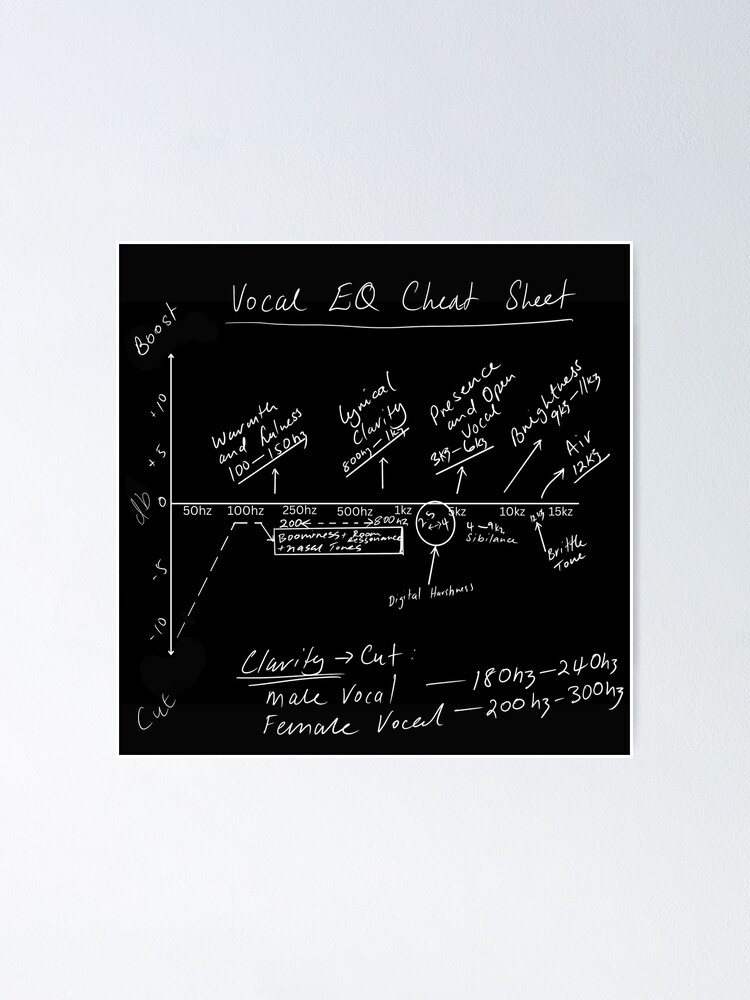 Vocal EQ Cheat Sheet
Boost
+10
+5
db
0
-5
-10
Cut
Warmth
and fulness
100-150hz
Lyrical
Clarity
800hz-1kz
Presence
and Open
Vocal
3kz-6kz
Brightness
9kz-11kz
Air
12kz
50hz 100hz 250hz 500hz 1kz 5kz 10kz 15kz
200 ← - - - → 800hz
Boominess + Room
Ressonance
+ nasal Tones
2.5
↔4
Digital Harshness
4-9kz
Sibilance
12kz
Brittle
Tone
Clarity → Cut:
male Vocal — 180hz-240hz
Female Vocal — 200hz-300hz